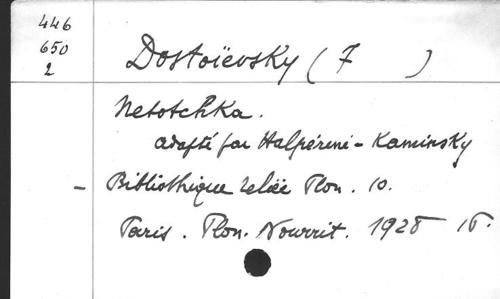 446
650
2
Dostoïevsky (F )
Netotchka.
adapté par Halpérine-Kaminsky
- Bibliothique reliée Plon. 10.
Paris. Plon. Nourrit. 1928 16.